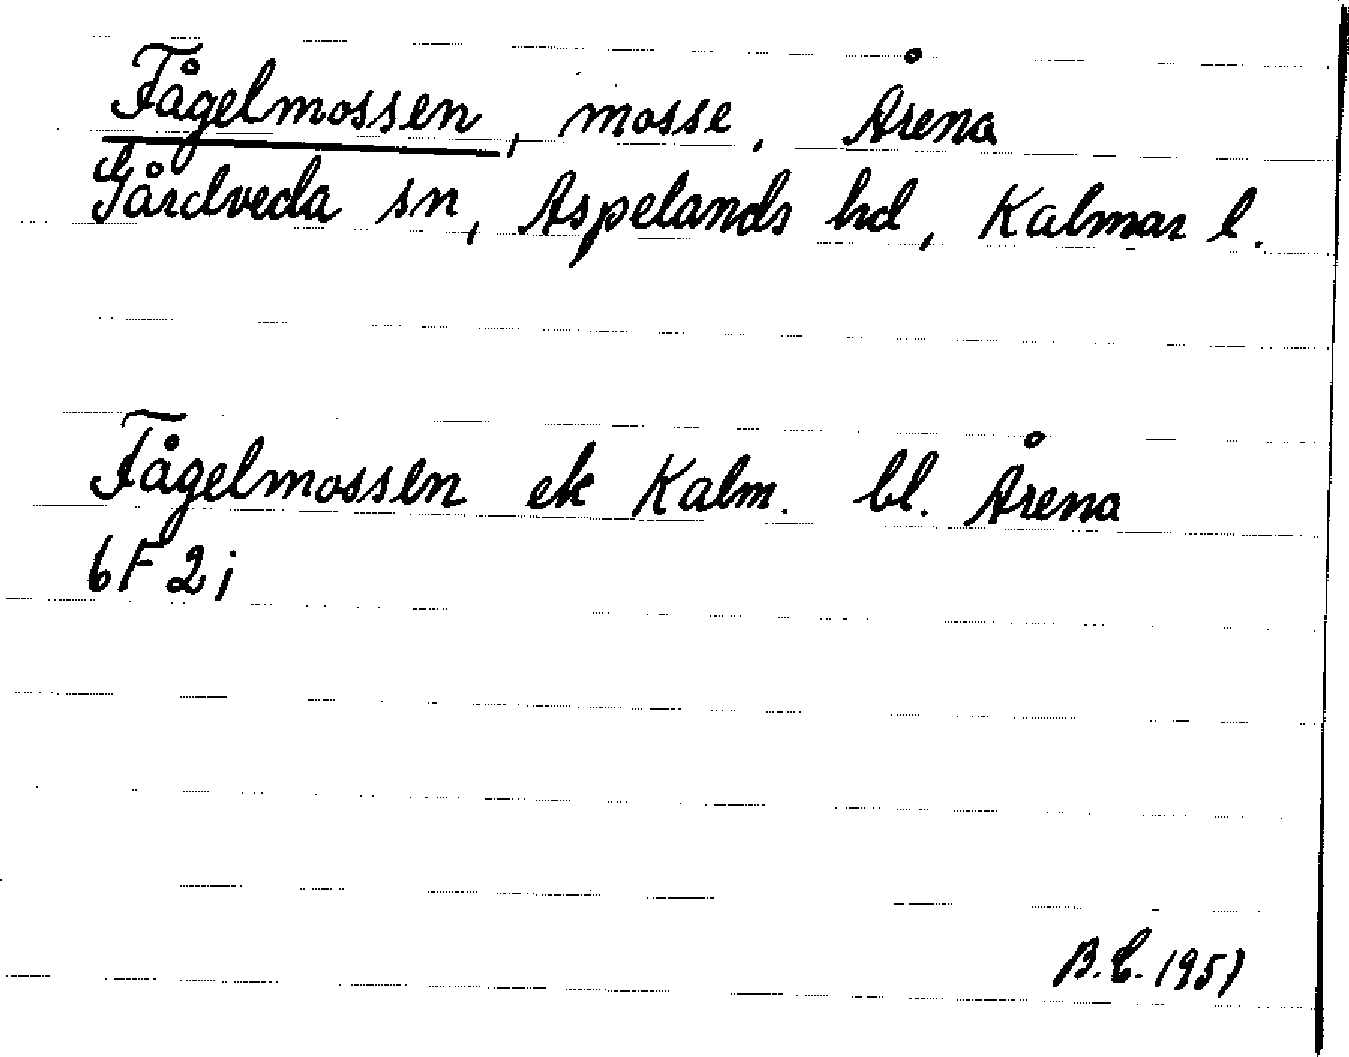 Fågelmossen, mosse, Årena
Gårdveda sn, Aspelands hd, Kalmar l.
Fågelmossen ek Kalm. bl. Årena
6F 2i
B.C. 1957